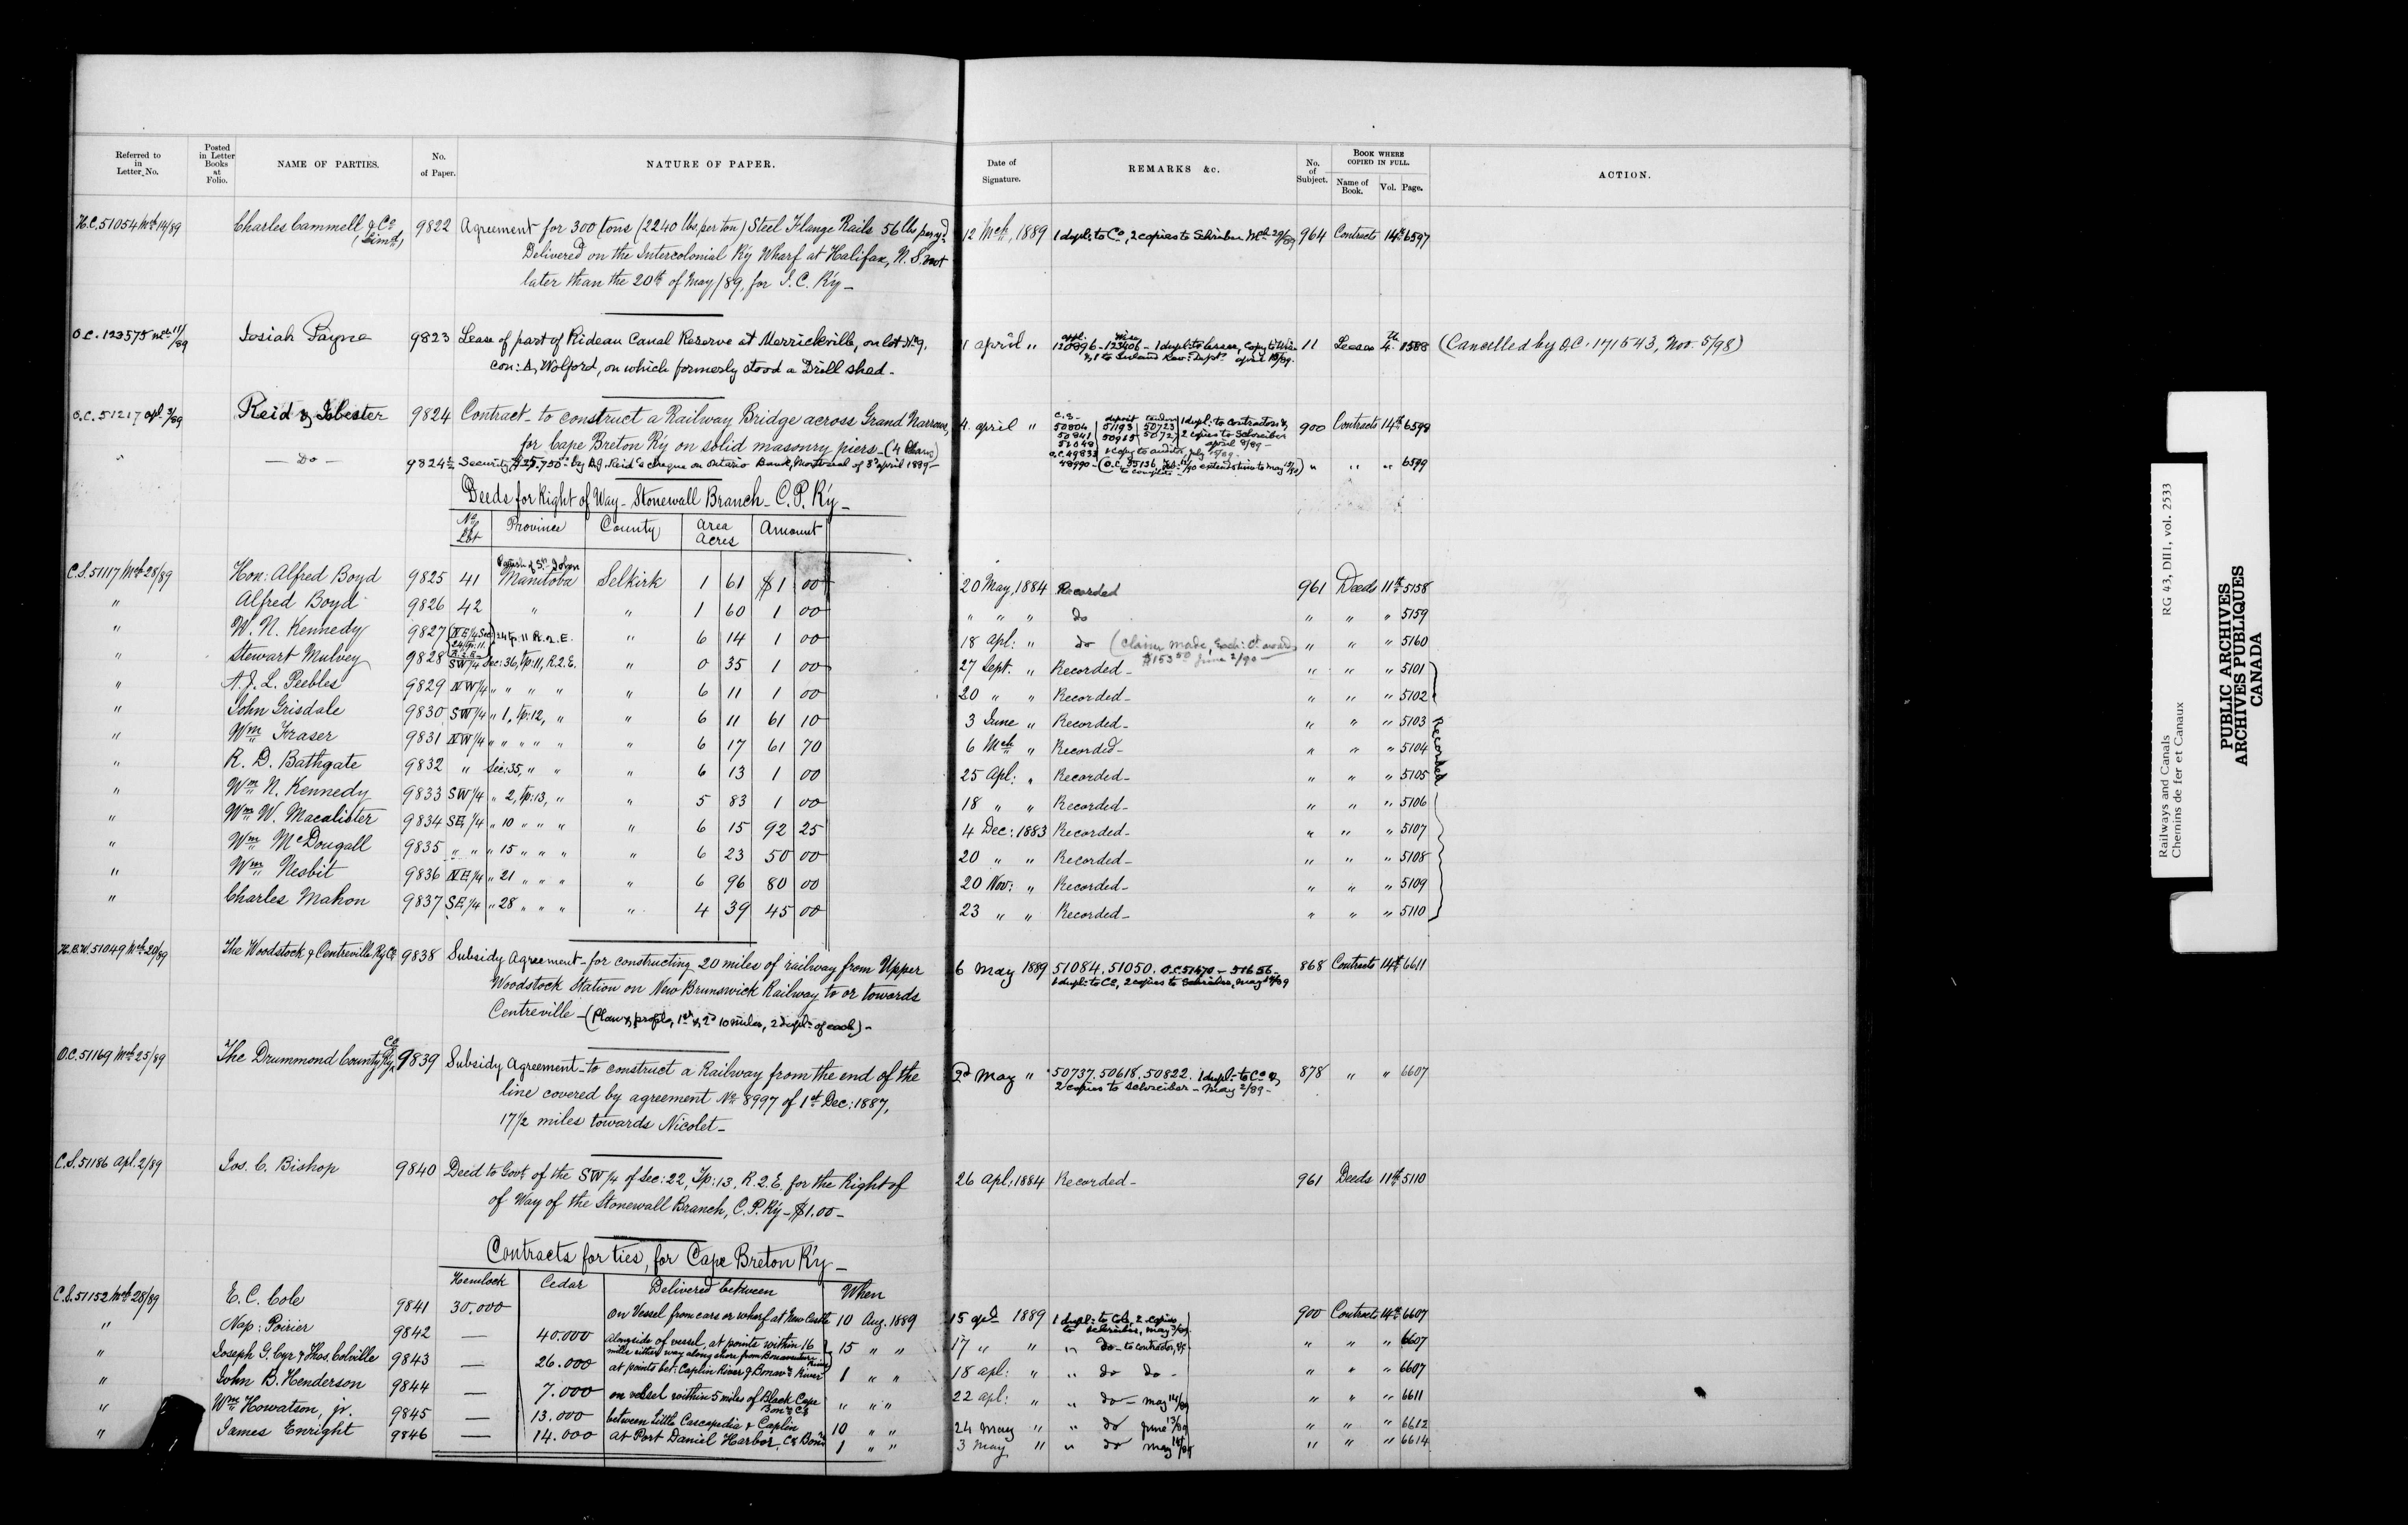 Referred to in Letter No. Posted in Letter Books at Folio. NAME OF PARTIES. No. of Paper. NATURE OF PAPER. Date of Signature. REMARKS &c. No. of Subject. BOOK WHERE COPIED IN FULL. Name of Book. Vol. Page. ACTION.
H.C. 51054 Mch 14/89 Charles Cammell & Co (Limd) 9822 Agreement for 300 tons (2240 lbs. per ton) Steel Flange Rails 56 lbs per yd. 12 Mch, 1889 1 dupl: to Co, 2 copies to Schreiber Mch 29/89 964 Contracts 14th 6597
Delivered on the Intercolonial Ry Wharf at Halifax, N.S. not
later than the 20th of May/89, for I.C. Ry —
O.C. 123575 Mch 11/89 Josiah Payne 9823 Lease of part of Rideau Canal Reserve at Merrickville, on lot No 9, 1 April " 120896 - 123406 - 1 dupl: to lessee, Copy to 11 Leases 4th 1588 (Cancelled by O.C. 171543, Nov. 5/98)
Con: A, Wolford, on which formerly stood a Drill shed — & 1 to Inland Rev: Dept
O.C. 51217 Apl 3/89 Reid & Isbester 9824 Contract to construct a Railway Bridge across Grand Narrows, 4 April " 50804 50841 51048 51193 50965 50723 50727 1 dupl: to Contractors &, 2 copies to Schreiber April 8/89 — 900 Contracts 14th 6598
for Cape Breton Ry on solid masonry piers — (4 Plans)
" — Do — 9824½ Security, $25.750 by R.G. Reid's cheque on Ontario Bank, Montreal of 3d April 1889 — 48990 — " " " 6599
Deeds for Right of Way — Stonewall Branch — C.P. Ry —
No Lot Province County Area Acres Amount
Parish of St John
C.S. 51117 Mch 28/89 Hon: Alfred Boyd 9825 41 Manitoba Selkirk 1 61 $1 00 20 May, 1884 Recorded 961 Deeds 11th 5158
" Alfred Boyd 9826 42 " " 1 60 1 00 " " " do " " " 5159
" W. N. Kennedy 9827 (NE 1/4 Sec 24 Tp: 11 R. 2. E. " 6 14 1 00 18 Apl: " do (Claim made, Exch: Ct. award $153 50 June 2/90 — " " " 5160
" Stewart Mulvey 9828 SW 1/4 Sec: 36, Tp: 11, R. 2. E. " 0 35 1 00 27 Sept. " Recorded — " " " 5101
" A. J. L. Peebles 9829 NW 1/4 " " " " " 6 11 1 00 20 " " Recorded — " " " 5102
" John Grisdale 9830 SW 1/4 " 1, Tp: 12, " " 6 11 61 10 3 June " Recorded — " " " 5103 Recorded
" Wm Fraser 9831 NW 1/4 " " " " " 6 17 61 70 6 Mch " Recorded — " " " 5104
" R. D. Bathgate 9832 " Sec: 35, " " " 6 13 1 00 25 Apl: " Recorded — " " " 5105
" Wm N. Kennedy 9833 SW 1/4 " 2, Tp: 13, " " 5 83 1 00 18 " " Recorded — " " " 5106
" Wm W. Macalister 9834 SE 1/4 " 10 " " " " 6 15 92 25 4 Dec: 1883 Recorded — " " " 5107
" Wm McDougall 9835 " " " 15 " " " " 6 23 50 00 20 " " Recorded — " " " 5108
" Wm Nesbit 9836 NE 1/4 " 21 " " " " 6 96 80 00 20 Nov: " Recorded — " " " 5109
" Charles Mahon 9837 SE 1/4 " 28 " " " " 4 39 45 00 23 " " Recorded — " " " 5110
51049 Mch 20/89 The Woodstock & Centreville Ry Co 9838 Subsidy Agreement — for constructing 20 miles of railway from Upper 6 May 1889 51084. 51050. O.C. 51470 — 51656 — 868 Contracts 14th 6611
Woodstock Station on New Brunswick Railway to or towards 1 dupl: to Co, 2 copies to Schreiber, May
Centreville — (Plan & profile, 1st & 2d 10 miles, 2 dupl: of each) —
O.C. 51169 Mch 25/89 The Drummond County Ry Co 9839 Subsidy Agreement — to construct a Railway from the end of the 2d May " 50737. 50618. 50822. 1 dupl: to Co & 878 " " 6607
line covered by agreement No 8997 of 1st Dec: 1887, 2 copies to Schreiber — May 2/89 —
17 1/2 miles towards Nicolet —
C.S. 51186 Apl. 2/89 Jos. C. Bishop 9840 Deed to Govt of the SW 1/4 of Sec: 22, Tp: 13, R. 2. E. for the Right of 26 Apl: 1884 Recorded — 961 Deeds 11th 5110
of Way of the Stonewall Branch, C.P. Ry — $1.00 —
Contracts for ties, for Cape Breton Ry —
Hemlock Cedar Delivered between When
C.S. 51152 Mch 28/89 E. C. Cole 9841 30.000 On Vessel from cars or wharf at New Castle 10 Aug. 1889 15 Apl 1889 1 dupl: to Cole, 2 copies to Schreiber, May 3/89 900 Contracts 14th 6607
" Nap: Poirier 9842 — 40.000 alongside of vessel, at points within 16 miles either way along shore from Bonaventure River 15 " " 17 " " " do — to contractor, &c. " " " 6607
" Joseph G. Cyr & Thos. Colville 9843 — 26.000 at points bet: Caplin River & Bonavre River 1 " " 18 Apl: " " do do — " " " 6607
" John B. Henderson 9844 — 7.000 on vessel within 5 miles of Black Cape Bonre Co " " " 22 Apl: " " do — May 14/89 " " " 6611
" Wm Howatson, jr. 9845 — 13.000 between Little Cascapedia & Caplin 10 " " 24 May " " do June 13/89 " " " 6612
" James Enright 9846 — 14.000 at Port Daniel Harbor, Co Bonre 1 " " 3 May " " do May " " " 6614
Railways and Canals RG 43, DIII, vol. 2533
Chemins de fer et Canaux
PUBLIC ARCHIVES
ARCHIVES PUBLIQUES
CANADA